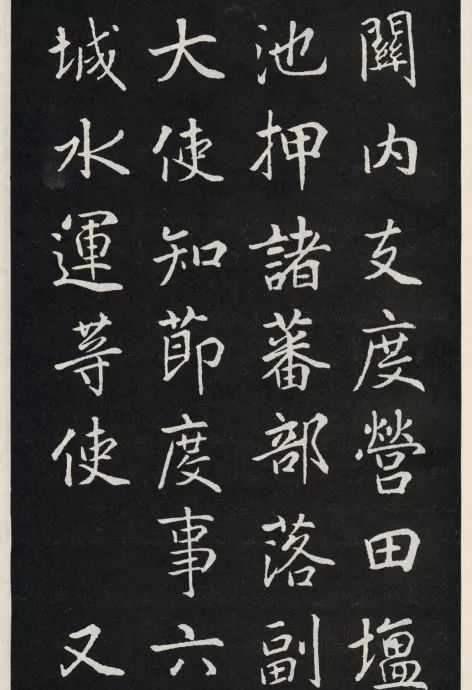 關内支度營田塩
池押諸蕃部落副
大使知節度事六
城水運等使 又